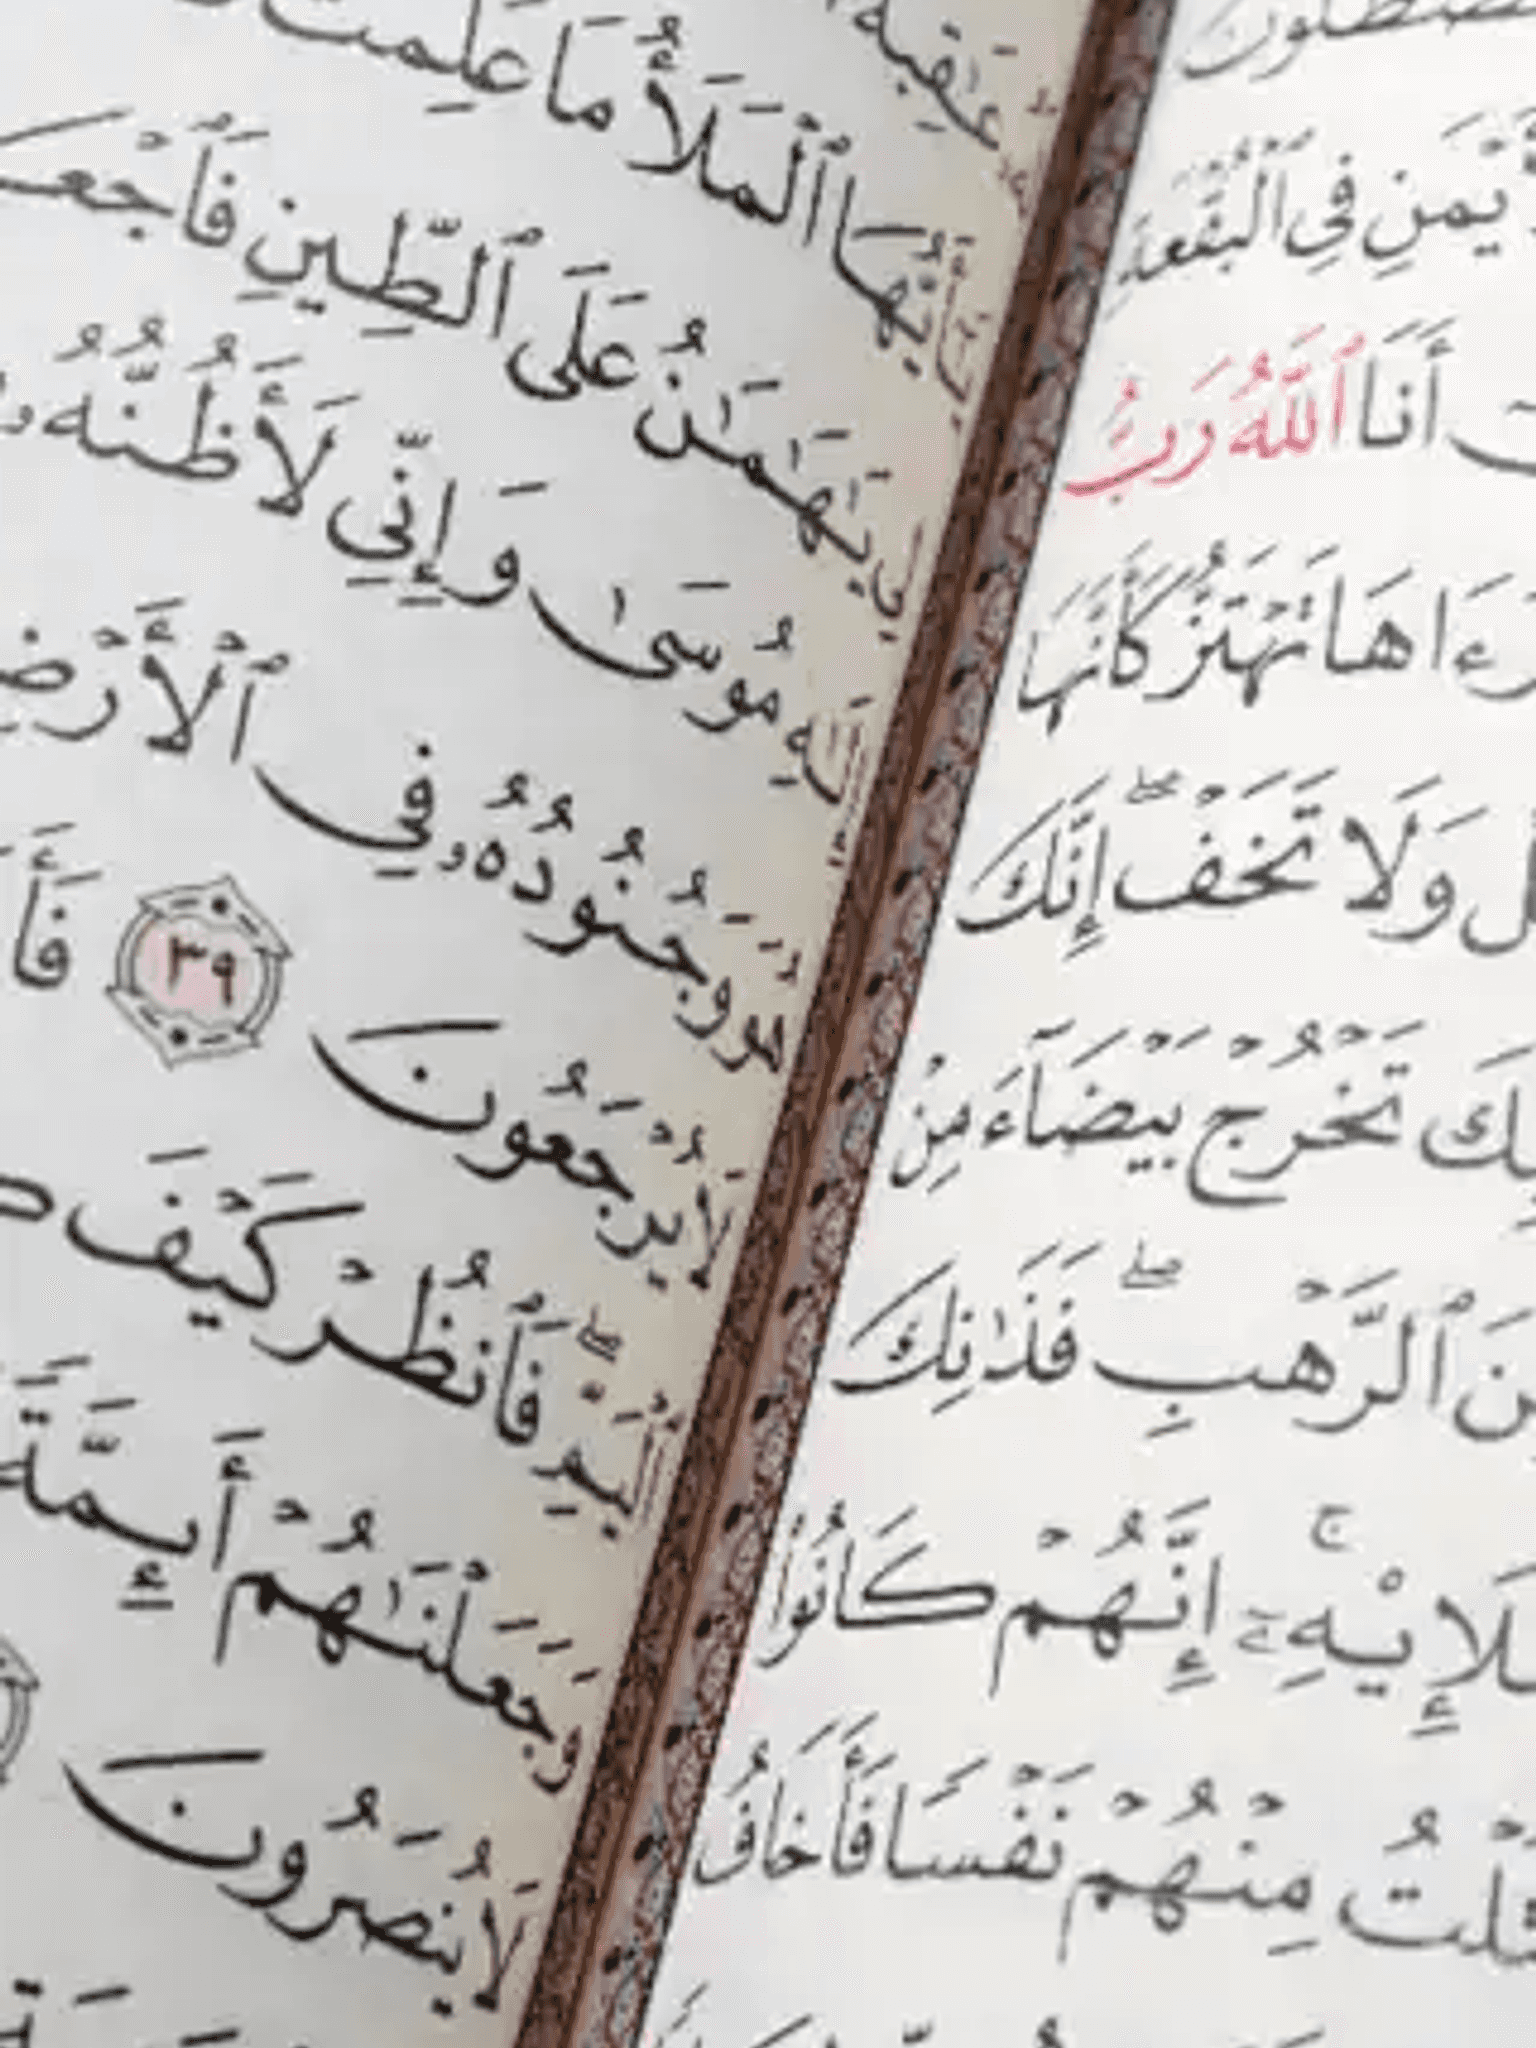 تَصْطَلُونَ
ٱلْأَيْمَنِ فِي ٱلْبُقْعَةِ
أَنَا ٱللَّهُ رَبُّ
رَءَاهَا تَهْتَزُّ كَأَنَّهَا
وَلَا تَخَفْ ۖ إِنَّكَ
تَخْرُجْ بَيْضَآءَ مِنْ
مِنَ ٱلرَّهْبِ ۖ فَذَٰنِكَ
وَمَلَإِيْهِۦٓ ۚ إِنَّهُمْ كَانُوا۟
قَتَلْتُ مِنْهُمْ نَفْسًا فَأَخَافُ
عَٰقِبَةُ
يَٰٓأَيُّهَا ٱلْمَلَأُ مَا عَلِمْتُ
يَٰهَٰمَٰنُ عَلَى ٱلطِّينِ فَٱجْعَل
إِلَٰهِ مُوسَىٰ وَإِنِّي لَأَظُنُّهُۥ
هُوَ وَجُنُودُهُۥ فِي ٱلْأَرْضِ
لَا يُرْجَعُونَ ٣٩ فَأَ
ٱلْيَمِّ ۖ فَٱنظُرْ كَيْفَ
وَجَعَلْنَٰهُمْ أَئِمَّةً
لَا يُنصَرُونَ